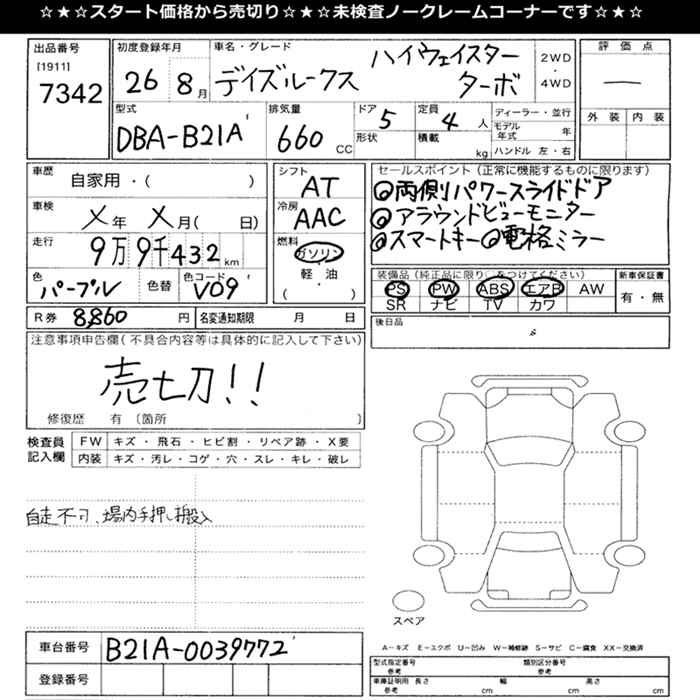 ☆★☆★スタート価格から売切り☆★☆★未検査ノークレームコーナーです☆★☆★
出品番号
[1911]
7342
初度登録年月
26 8月
車名・グレード
デイズルークス ハイウェイスター ターボ
2WD
・
4WD
評価点
—
外装 内装
型式
DBA-B21A
排気量
660 CC
ドア 5
形状
定員 4人
積載 kg
ディーラー・並行
モデル年式 年
ハンドル 左・右
車歴
自家用・( )
車検
メ年 メ月( 日)
走行
9万9千432km
色
パープル
色替
色コード
V09
シフト
AT
冷房
AAC
燃料
ガソリン
軽油
( )
セールスポイント(正常に機能するものに限ります)
◎両側パワースライドドア
◎アラウンドビューモニター
◎スマートキー◎電格ミラー
装備品(純正品に限り○をつけてください)
PS PW ABS エアB AW
SR ナビ TV カワ
新車保証書
有・無
R券 8860 円
名変通知期限 月 日
後日品
注意事項申告欄(不具合内容等は具体的に記入して下さい)
売七刀!!
修復歴 有 (箇所 )
検査員記入欄
FW キズ・飛石・ヒビ割・リペア跡・X要
内装 キズ・汚レ・コゲ・穴・スレ・キレ・破レ
自走不可、場内手押し搬入
スペア
車台番号 B21A-0039772
登録番号
A-キズ E-エクボ U-凹み W-補修跡 S-サビ C-腐食 XX-交換済
型式指定番号
参考
類別区分番号
参考
車庫証明用 長さ
参考 cm
幅 cm
高さ cm